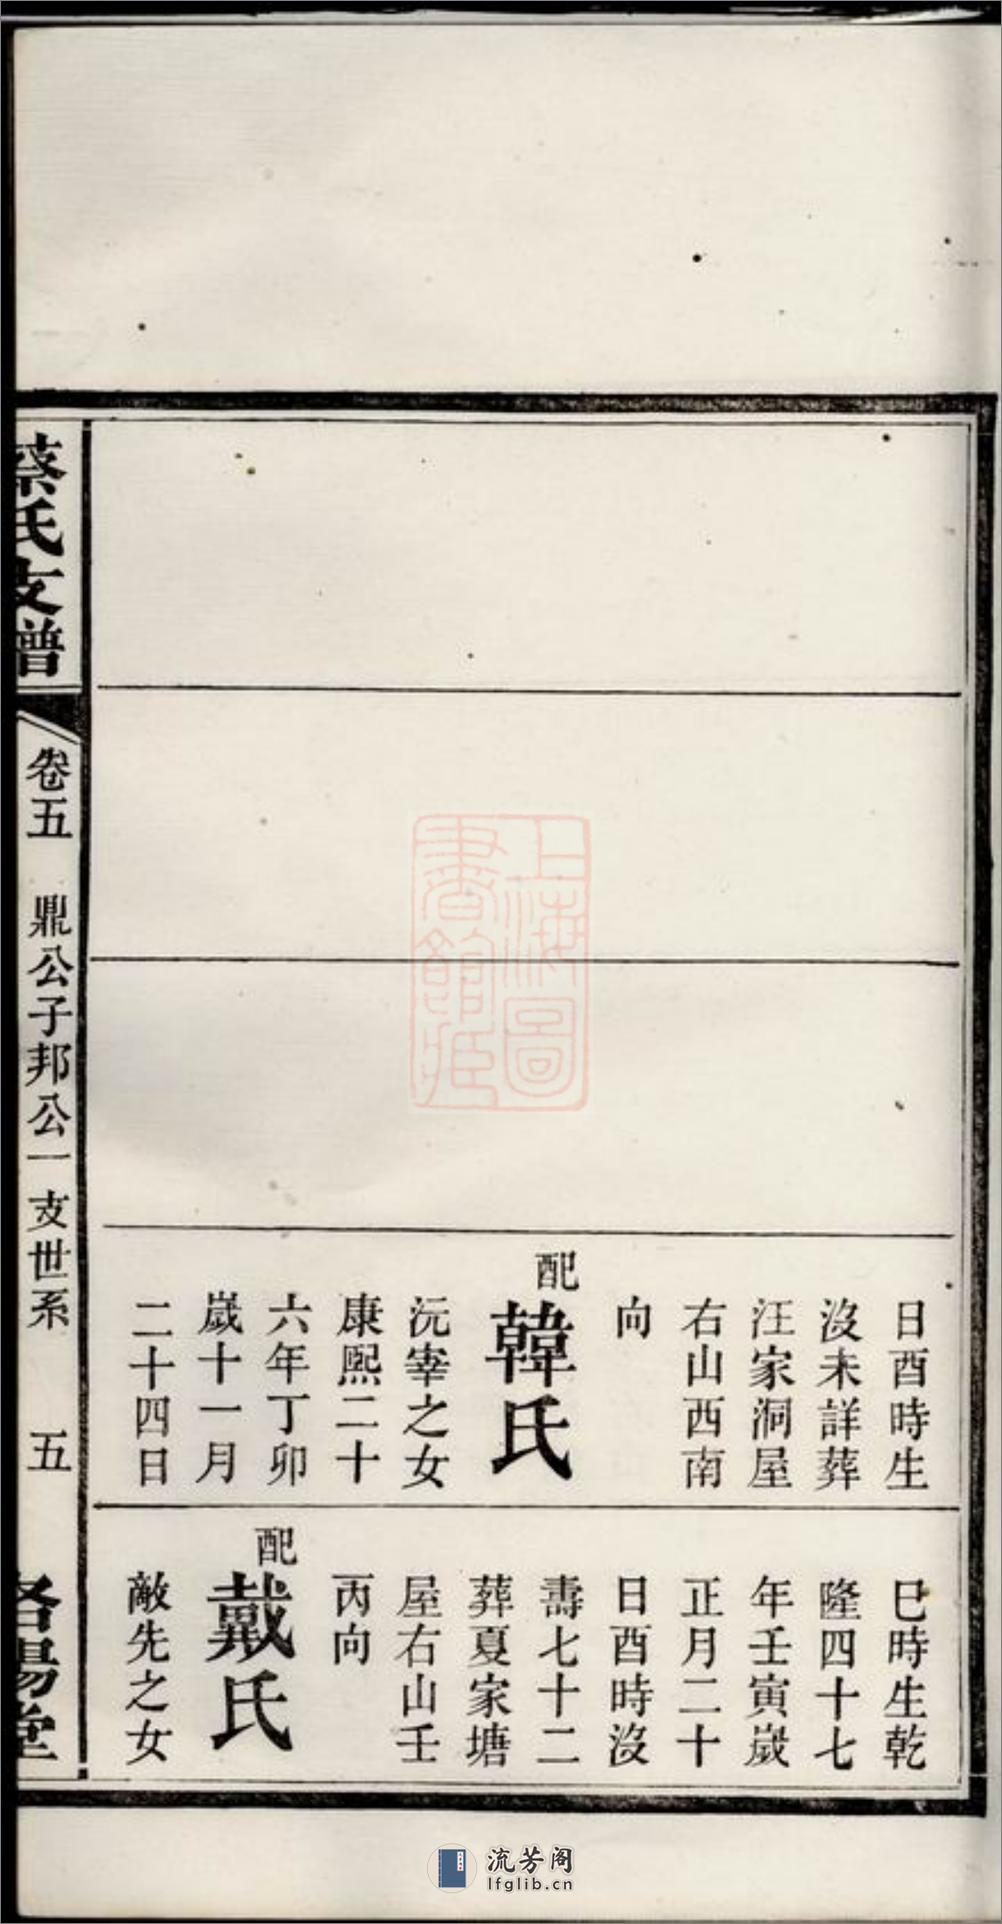 日酉時生
沒未詳葬
汪家洞屋
右山西南
向
配
韓氏
沅宰之女
康熙二十
六年丁卯
歲十一月
二十四日
巳時生乾
隆四十七
年壬寅歲
正月二十
日酉時沒
壽七十二
葬夏家塘
屋右山壬
丙向
配
戴氏
敵先之女
蔡氏支譜
卷五
鼎公子邦公一支世系
五
洛陽堂
上海圖
書館藏
流芳阁
lfglib.cn